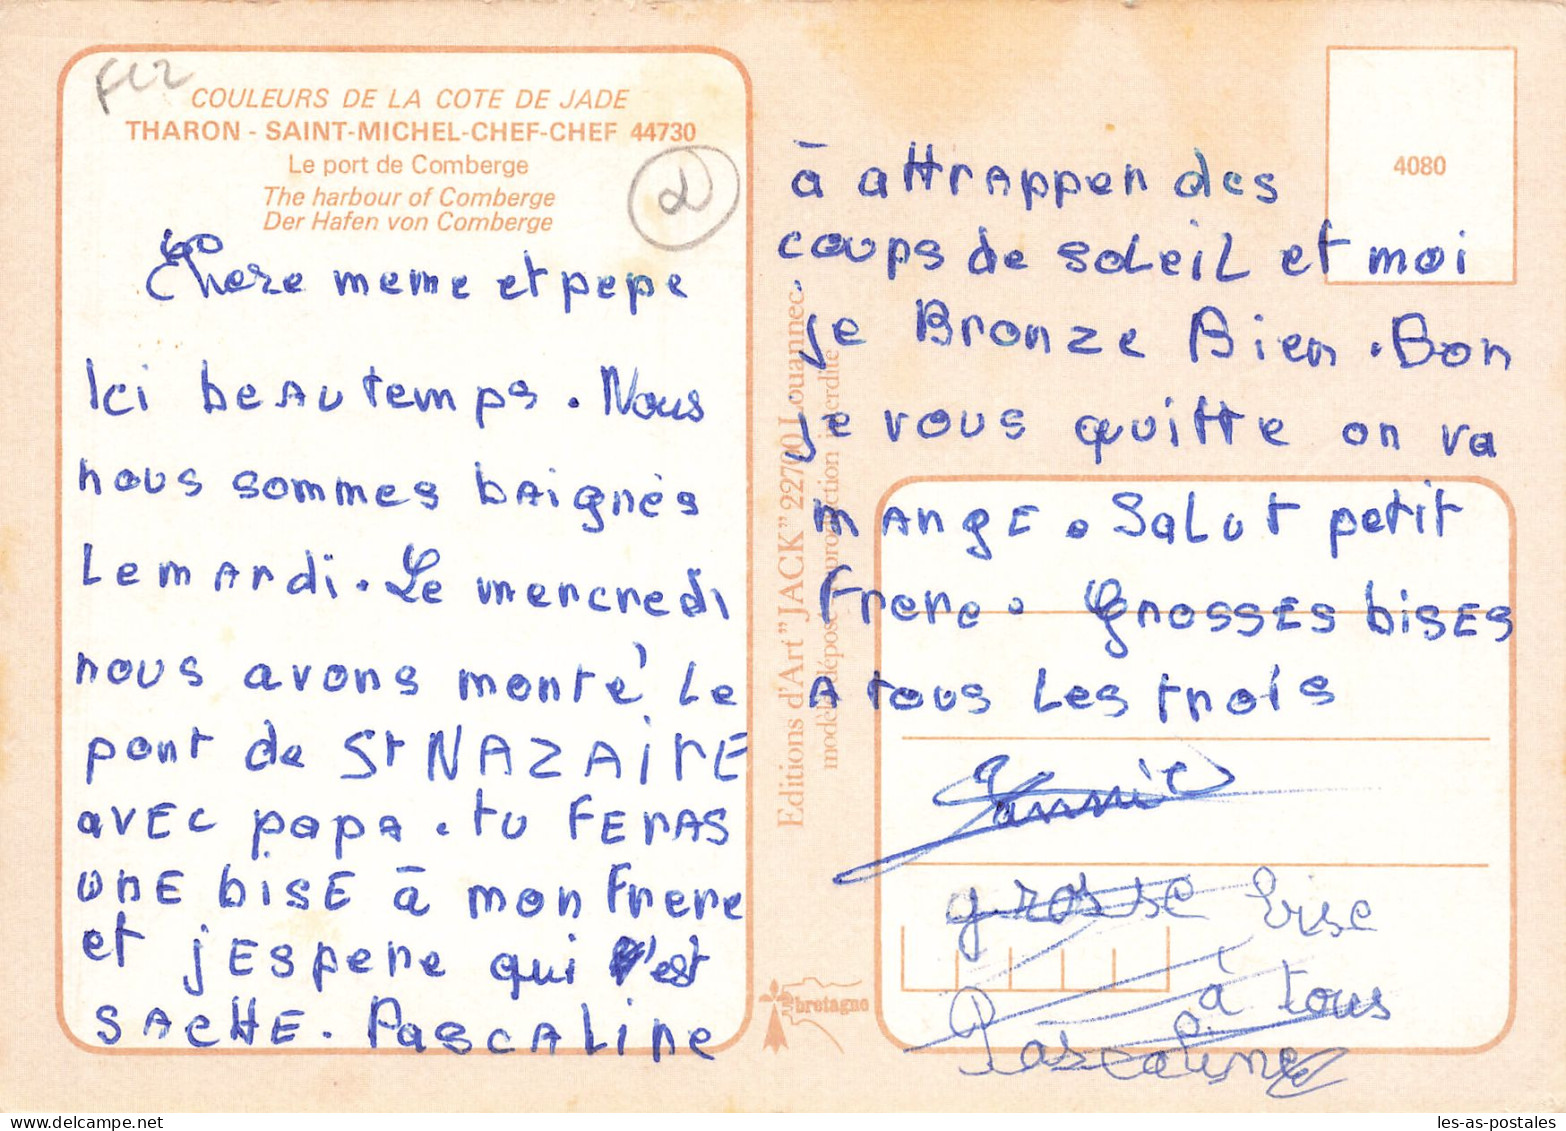 FL2
COULEURS DE LA COTE DE JADE
THARON - SAINT-MICHEL-CHEF-CHEF 44730
Le port de Comberge
The harbour of Comberge
Der Hafen von Comberge
Chere meme et pepe
Ici beau temps. Nous
nous sommes baignés
Le mardi. Le mercredi
nous avons monté Le
pont de St NAZAIRE
avec papa. tu FERAS
une bise à mon Frere
et j'espere qui s'est
SACHE. PASCALINE
Editions d'Art "JACK" 22700 Louannec
modèle déposé reproduction interdite
bretagne
4080
à attrapper des
coups de soleil et moi
je Bronze Bien. Bon
je vous quitte on va
mange. Salut petit
Frere. Grosses bises
A tous Les trois
Yannic
grosse bise
à tous
Pascaline
les-as-postales